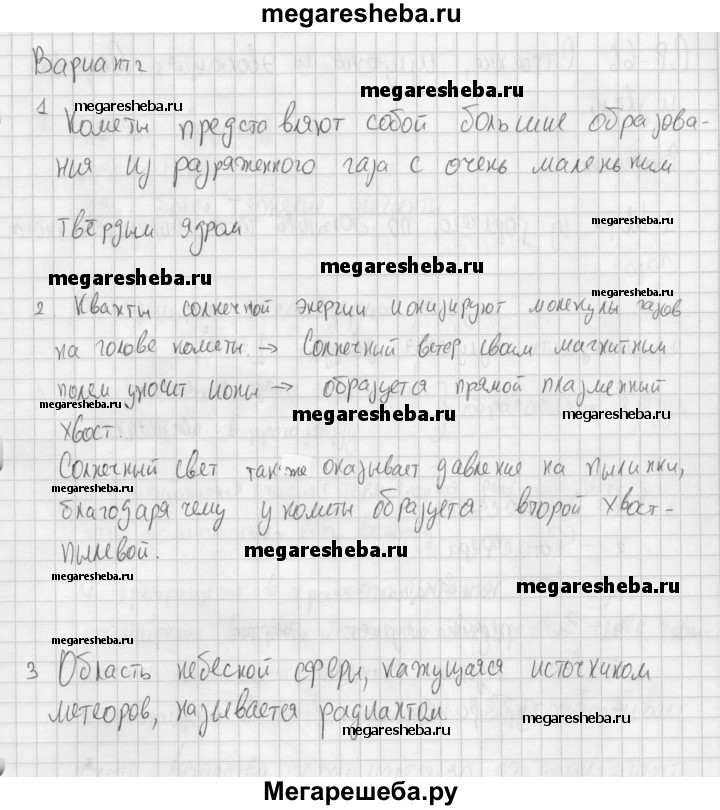 megaresheba.ru
Вариант 2
megaresheba.ru
megaresheba.ru
1 Кометы представляют собой большие образова-
ния из разряженного газа с очень маленьким
твёрдым ядром
megaresheba.ru
megaresheba.ru
megaresheba.ru
megaresheba.ru
2. Кванты солнечной энергии ионизируют молекулы газов
на голове кометы. → Солнечный ветер своим магнитным
полем уносит ионы → образуется прямой плазменный
megaresheba.ru
megaresheba.ru
megaresheba.ru
хвост.
Солнечный свет также оказывает давление на пылинки,
megaresheba.ru
благодаря чему у кометы образуется второй хвост-
пылевой.
megaresheba.ru
megaresheba.ru
megaresheba.ru
megaresheba.ru
3 Область небесной сферы, кажущаяся источником
метеоров, называется радиантом
megaresheba.ru
megaresheba.ru
Мегарешеба.ру